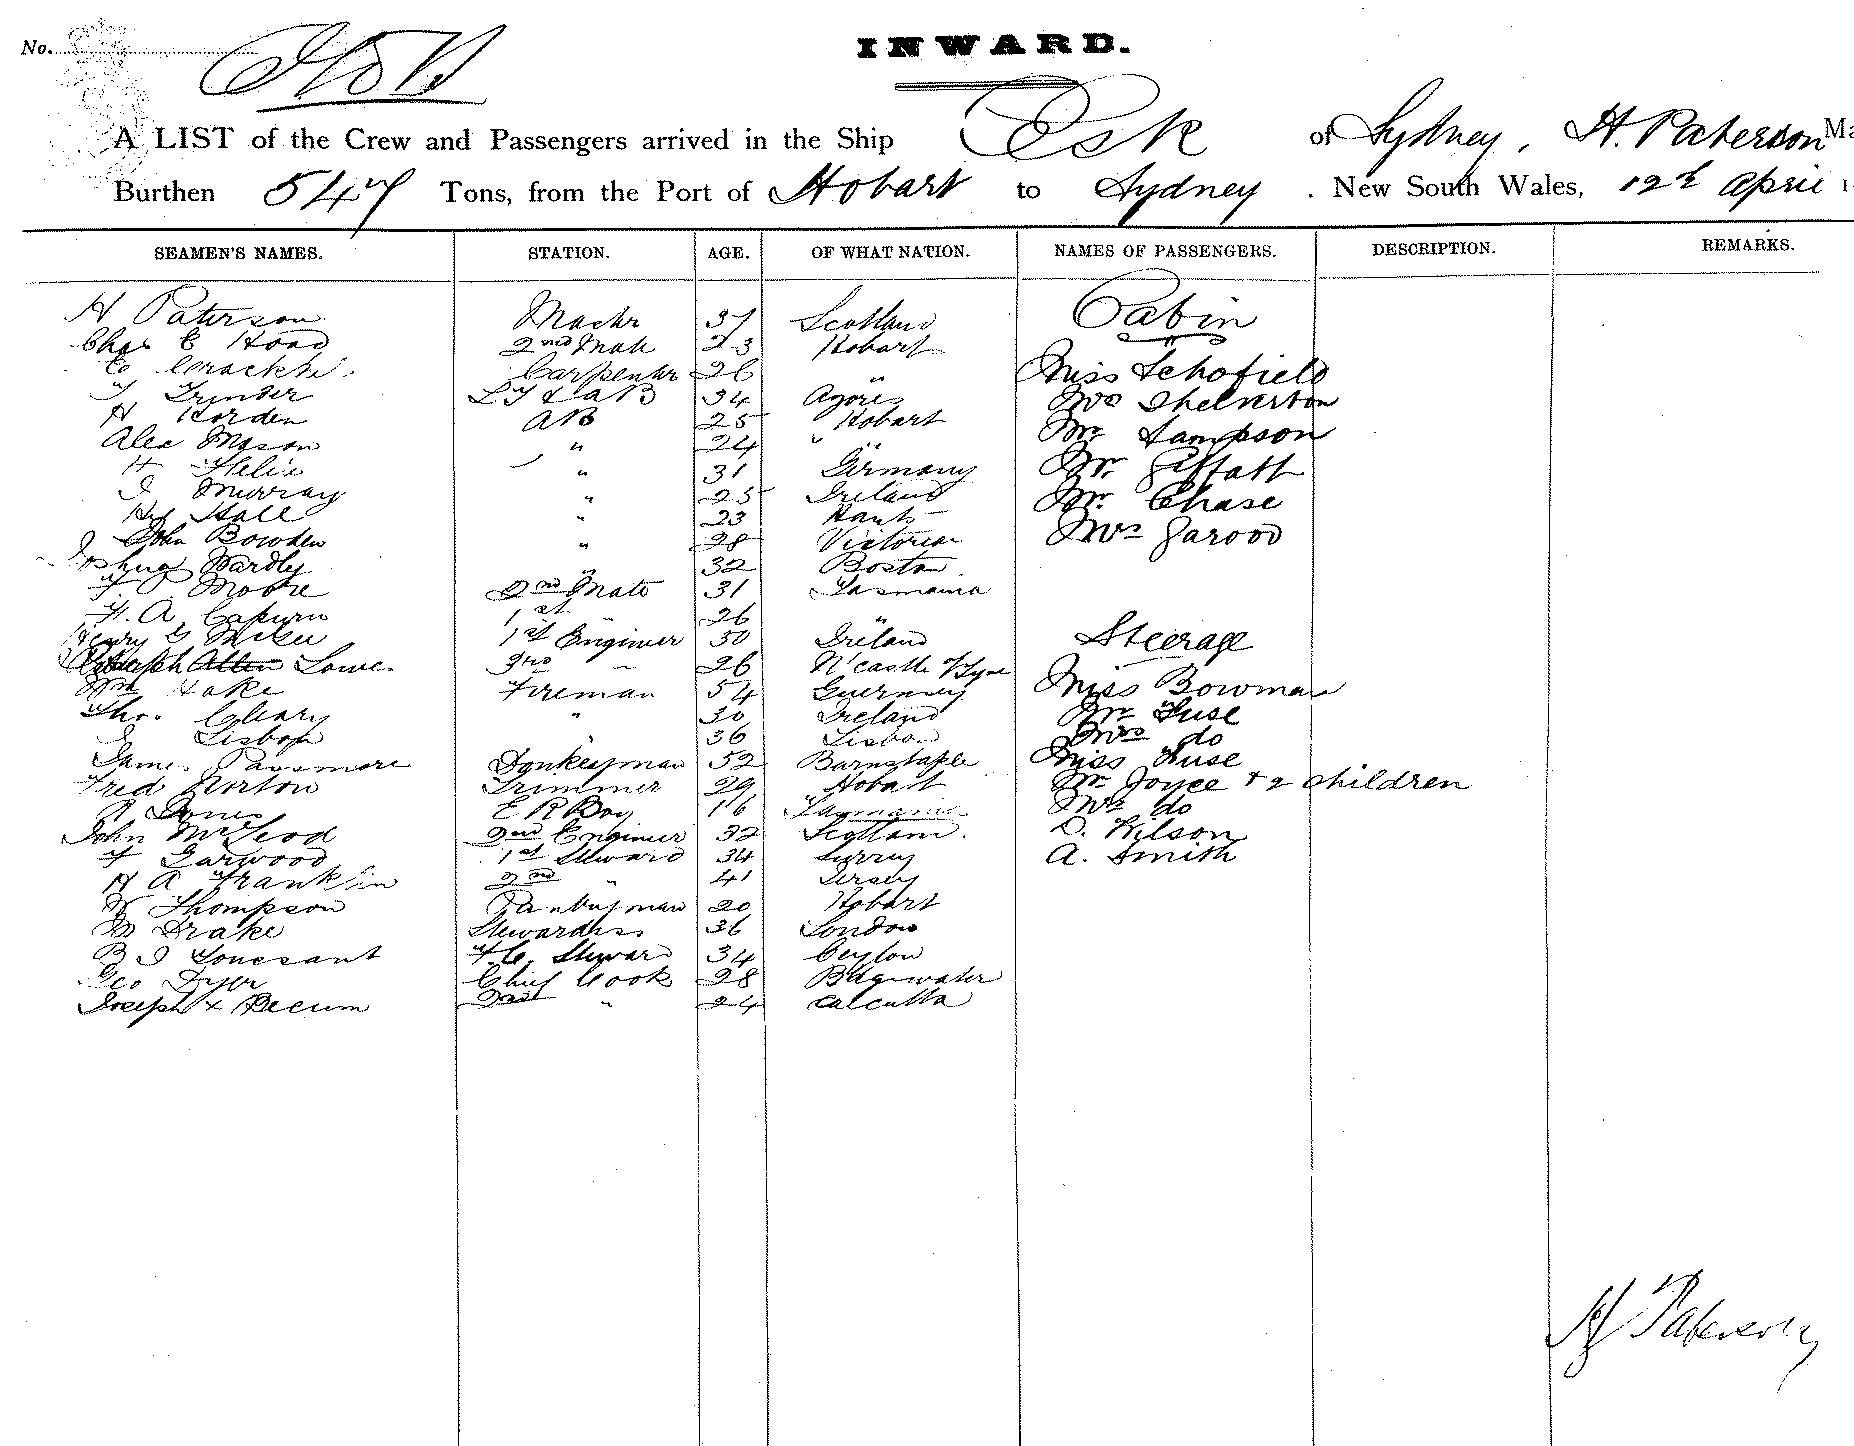 No.
INWARD.
A LIST of the Crew and Passengers arrived in the Ship Esk of Sydney, H. Paterson Ma
Burthen 547 Tons, from the Port of Hobart to Sydney . New South Wales, 12th April 1
SEAMEN'S NAMES. STATION. AGE. OF WHAT NATION. NAMES OF PASSENGERS. DESCRIPTION. REMARKS.
H Paterson Mastr 37 Scotland Cabin
Chas E Hoad 2nd Mate 23 Hobart
Carpenter 26 " Miss Schofield
Trinder 34 Azores Mrs Shelverton
H Horden AB 25 Hobart Mr Sampson
Alec Mason " 24 "
H Helix " 31 Germany Mr Giffatt
J Murray " 25 Ireland Mr Chase
Hy Hall " 23 Hants Mrs Garood
John Bowden " 28 Victoria
Joshua Hardly " 32 Boston
Moore 2nd Mate 31 Tasmania
F. A. Capurn 1st 26 "
Henry G 1st Engineer 50 Ireland Steerage
Lowe. 3rd " 26 N'castle Tyne
Wm Hake Fireman 54 Guernsey Miss Bowman
Thos. Cleary " 30 Ireland Mr Fuse
J Lisbon " 36 Lisbon Mrs do
James Passmore Donkeyman 52 Barnstaple Miss Fuse
Fred Norton Trimmer 29 Hobart Mr Joyce + 2 children
Jones E R Boy 16 Tasmania Mrs do
John McLeod 2nd Engineer 32 Scotland. D. Wilson
F Garwood 1st Steward 34 Surrey A. Smith
H A Franklin 2nd " 41 Jersey
W Thompson Pantryman 20 Hobart
M Drake Stewardess 36 London
B J Tousant F.C. Steward 34 Ceylon
Geo Dyer Chief Cook 28 Bdgewater
Joseph x Decum 2nd " 24 Calcutta
H Paterson